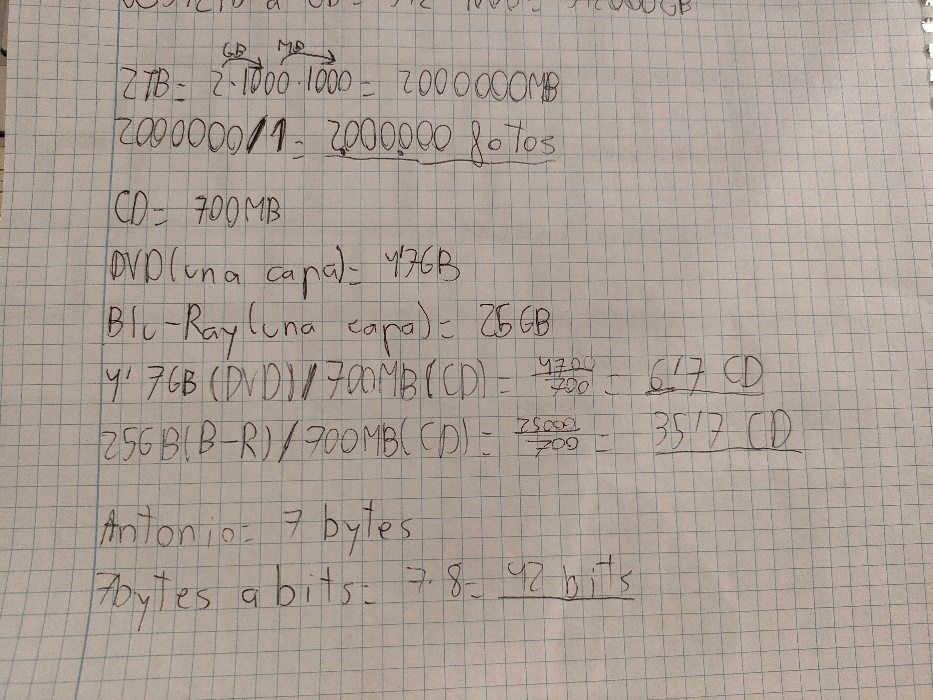 GB MB
2TB= 2·1000·1000= 2000000MB
2000000/1= 2.000.000 fotos
CD= 700MB
DVD(una capa)= 4'7GB
Blu-Ray(una capa)= 25GB
4'7GB(DVD)/700MB(CD)= 4700/700= 6'7 CD
25GB(B-R)/700MB(CD)= 25000/700= 35'7 CD
Antonio= 7 bytes
7bytes a bits= 7·8= 42 bits